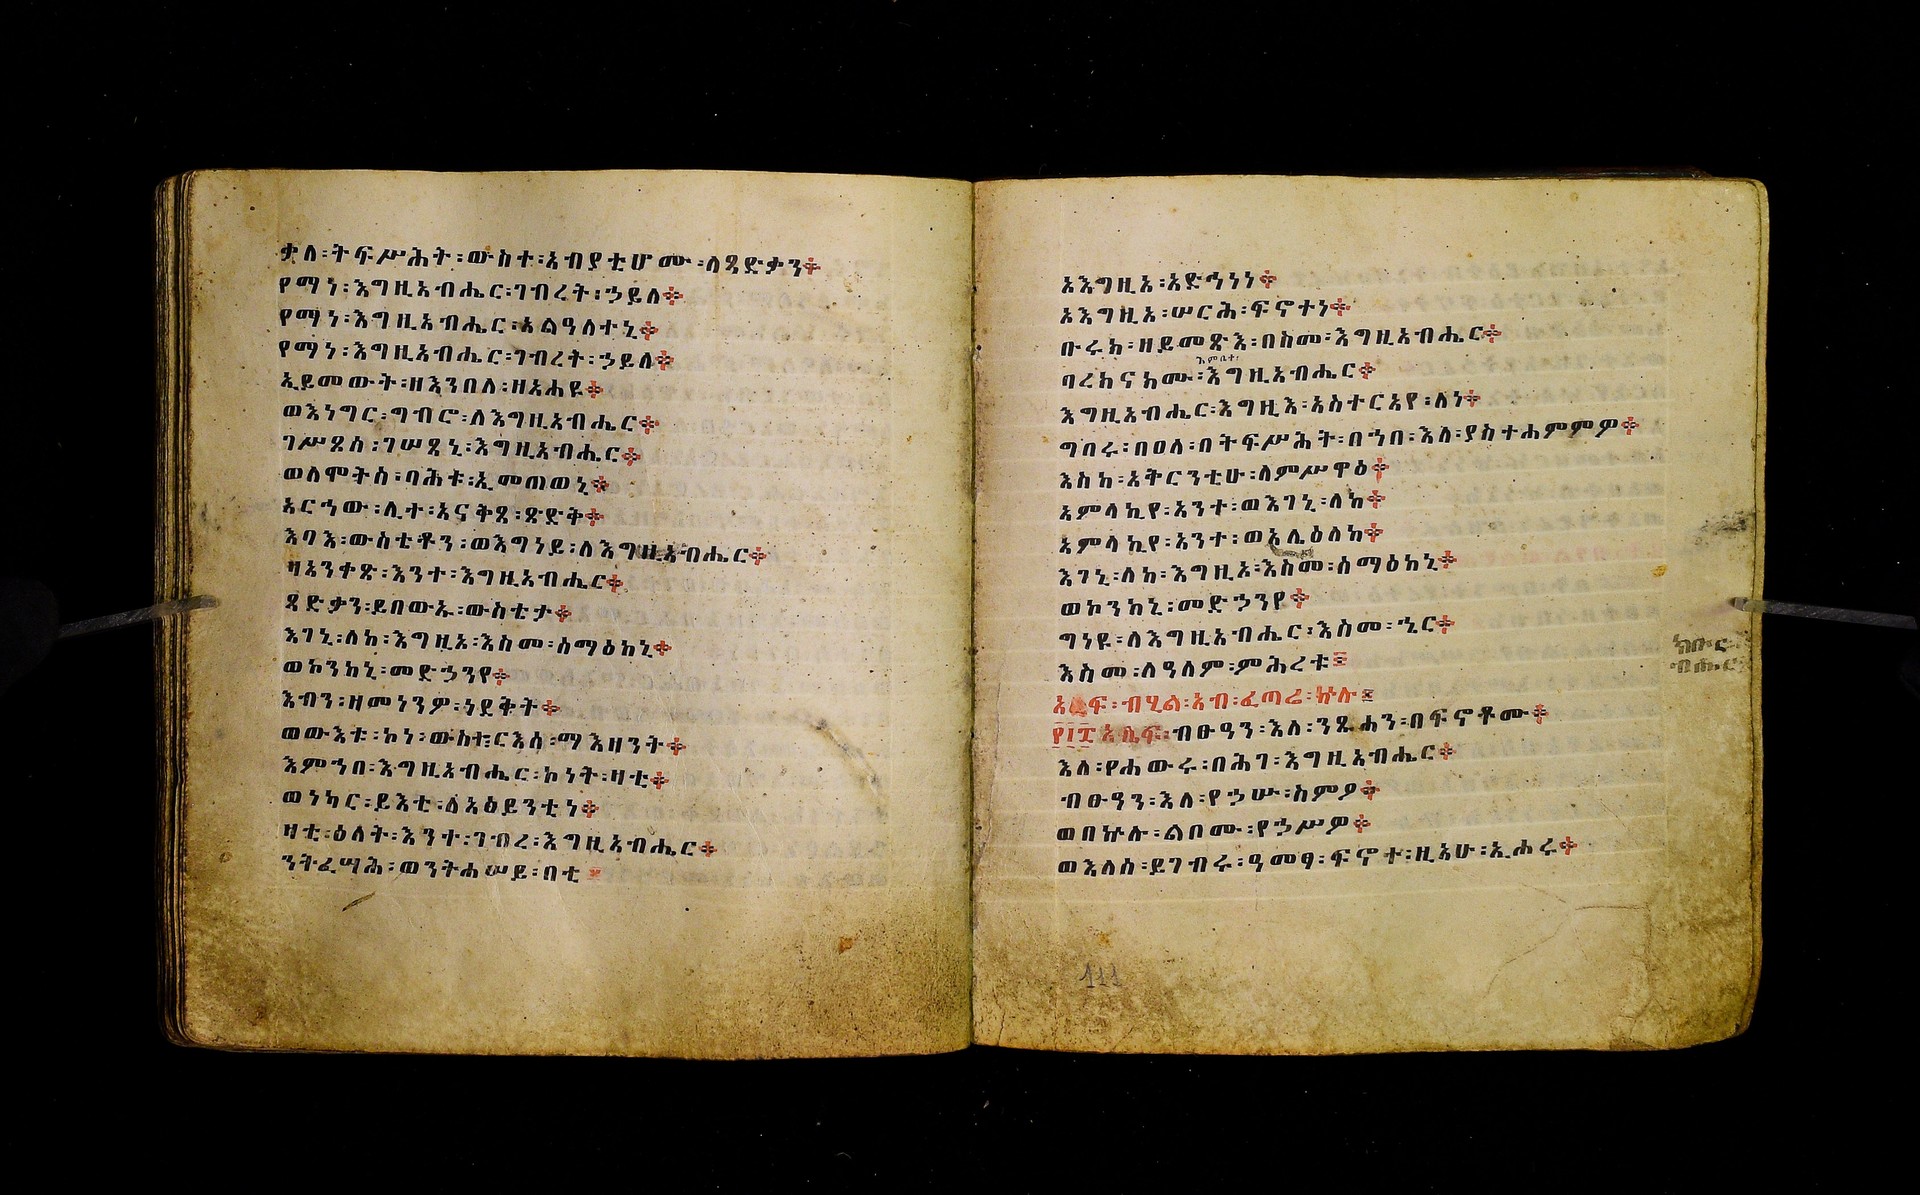 ቃለ፡ትፍሥሕት፡ውስተ፡አብያቲሆሙ፡ለጻድቃን፨
የማነ፡እግዚአብሔር፡ገብረት፡ኃይለ፨
የማነ፡እግዚአብሔር፡አልዓለተኒ፨
የማነ፡እግዚአብሔር፡ገብረት፡ኃይለ፨
ኢይመውት፡ዘእንበለ፡ዘአሐዩ፨
ወእነግር፡ግብሮ፡ለእግዚአብሔር፨
ገሥጾሰ፡ገሠጸኒ፡እግዚአብሔር፨
ወለሞትሰ፡ባሕቱ፡ኢመጠወኒ፨
አርኅው፡ሊተ፡አናቅጸ፡ጽድቅ፨
እባእ፡ውስቴቶን፡ወእግነይ፡ለእግዚአብሔር፨
ዛአንቀጽ፡እንተ፡እግዚአብሔር፨
ጻድቃን፡ይበውኡ፡ውስቴታ፨
እገኒ፡ለከ፡እግዚአ፡እስመ፡ሰማዕከኒ፨
ወኮንከኒ፡መድኃንየ፨
እብን፡ዘመነንዎ፡ነደቅት፨
ወውእቱ፡ኮነ፡ውስተ፡ርእሰ፡ማእዘንት፨
እምኀበ፡እግዚአብሔር፡ኮነት፡ዛቲ፨
ወነካር፡ይእቲ፡ለአዕይንቲነ፨
ዛቲ፡ዕለት፡እንተ፡ገብረ፡እግዚአብሔር፨
ንትፈሣሕ፡ወንትሐሠይ፡በቲ፨
ኦእግዚአ፡አድኅነነ፨
ኦእግዚአ፡ሠርሕ፡ፍኖተነ፨
ቡሩክ፡ዘይመጽእ፡በስመ፡እግዚአብሔር፨
ባረክናክሙ፡እግዚአብሔር፨
እግዚአብሔር፡እግዚእ፡አስተርአየ፡ለነ፨
ግበሩ፡በዐለ፡በትፍሥሕት፡በኀበ፡እለ፡ያስተሐምምዎ፨
እስከ፡አቅርንቲሁ፡ለምሥዋዕ፨
አምላኪየ፡አንተ፡ወእገኒ፡ለከ፨
አምላኪየ፡አንተ፡ወአሌዕለከ፨
እገኒ፡ለከ፡እግዚአ፡እስመ፡ሰማዕከኒ፨
ወኮንከኒ፡መድኃንየ፨
ግነዩ፡ለእግዚአብሔር፡እስመ፡ኄር፨
እስመ፡ለዓለም፡ምሕረቱ፨
አሌፍ፡ብሂል፡አብ፡ፈጣሬ፡ኵሉ፨
፻፲፰ አሌፍ፡ብፁዓን፡እለ፡ንጹሓን፡በፍኖቶሙ፨
እለ፡የሐውሩ፡በሕገ፡እግዚአብሔር፨
ብፁዓን፡እለ፡የኃሡ፡ስምዖ፨
ወበኵሉ፡ልቦሙ፡የኃሥዎ፨
ወእለሰ፡ይገብሩ፡ዓመፃ፡ፍኖተ፡ዚአሁ፡ኢሐሩ፨
111